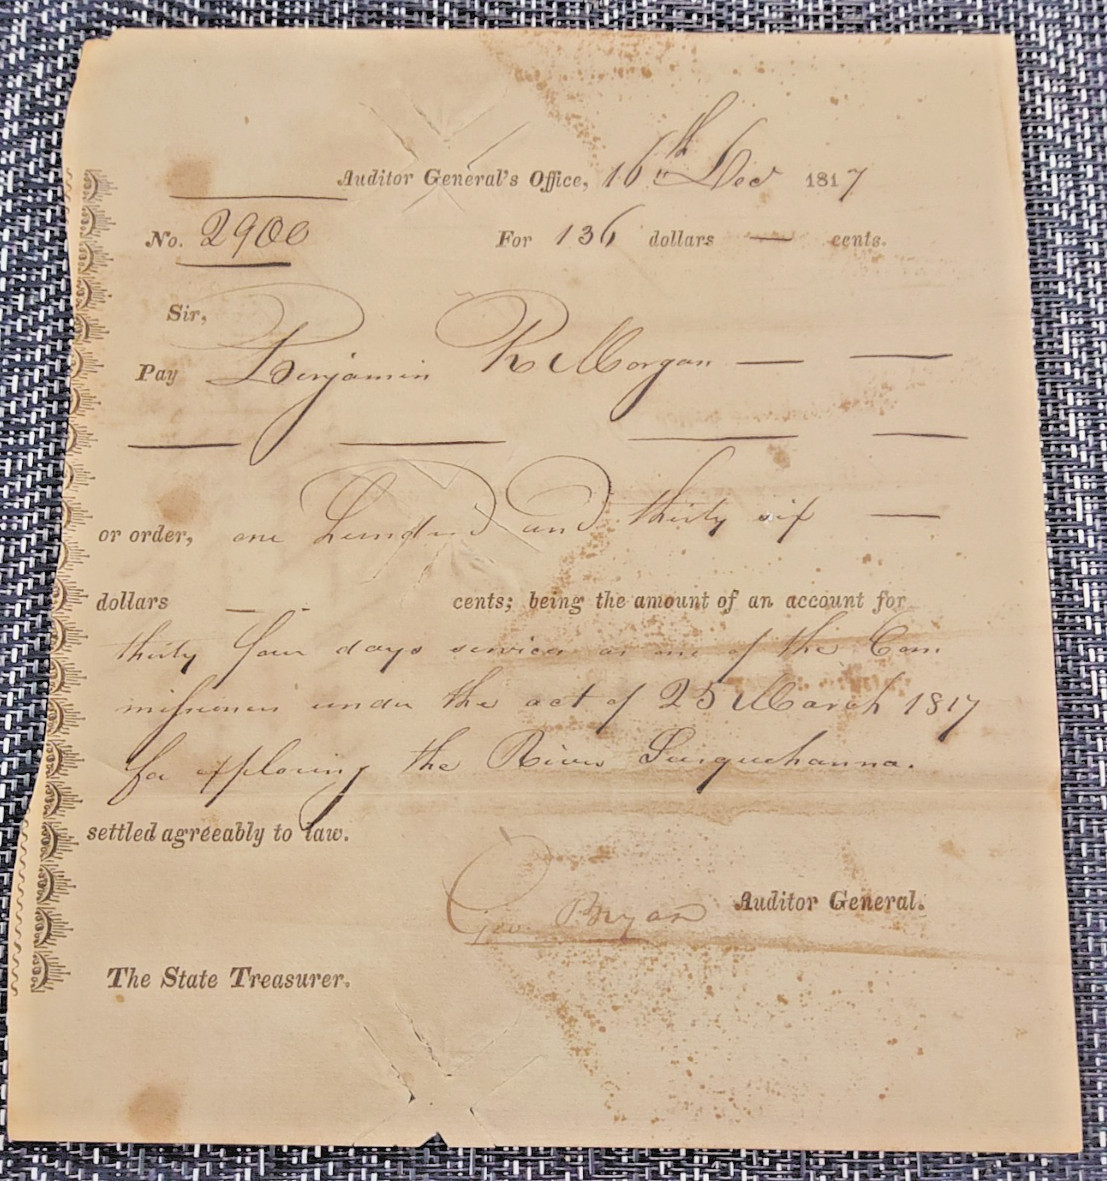 Auditor General's Office, 16th Dec 1817
No. 2900 For 136 dollars — cents.
Sir,
Pay Benjamin R Morgan — —
— — — —
or order, one hundred and thirty six —
dollars — - cents; being the amount of an account for
thirty four days services as one of the Com
missioners under the act of 25 March 1817
for exploring the River Susquehanna.
settled agreeably to law.
Geo. Bryan Auditor General.
The State Treasurer.